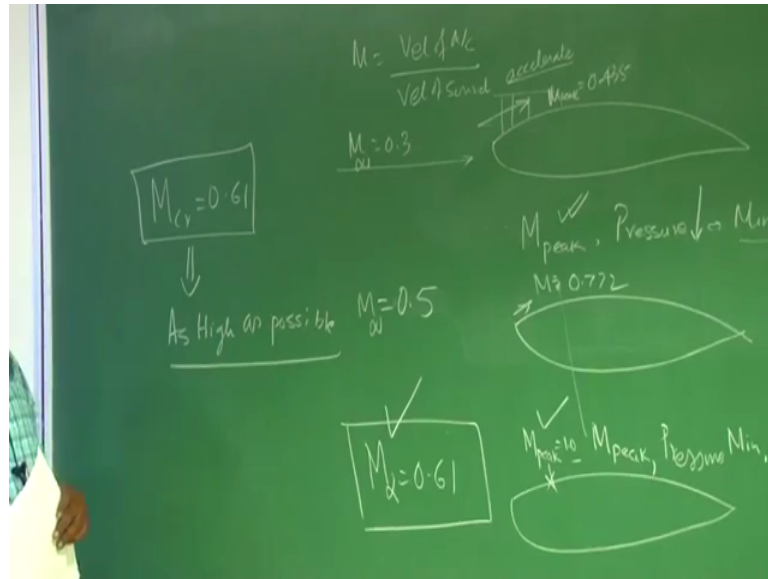 M = Vel of A/c
Vel of Sound
accelerate
Mpeak = 0.435
M∞ = 0.3
Mcr = 0.61
Mpeak, Pressure ↓ → Min
⇓
M = 0.772
As High as possible
M∞ = 0.5
Mpeak = 1.0
Mpeak, Pressure Min.
M∞ = 0.61